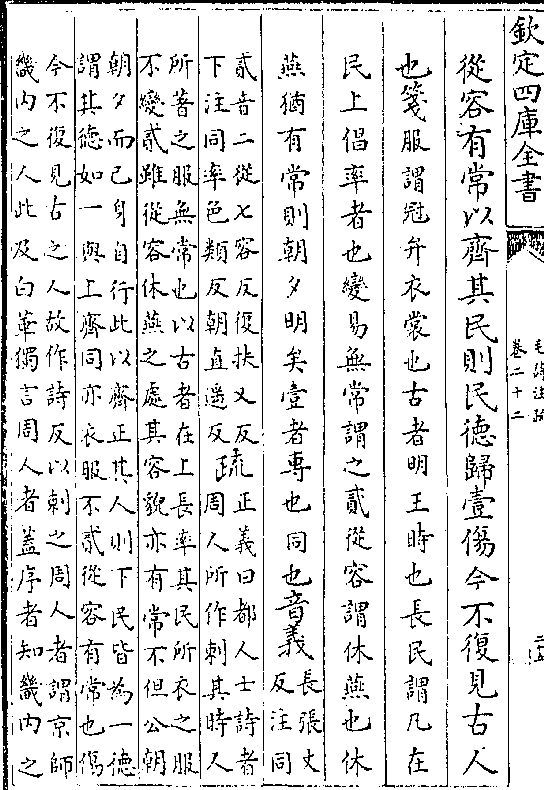 欽定四庫全書
毛詩注疏
卷二十二
從容有常以齊其民則民德歸壹傷今不復見古人
也箋服謂冠弁衣裳也古者明王時也長民謂凡在
民上倡率者也變易無常謂之貳從容謂休燕也休
燕猶有常則朝夕明矣壹者專也同也音義長張丈
反注同
貳音二從七容反復扶又反
下注同率色類反朝直遥反
疏正義曰都人士詩者
周人所作刺其時人
所著之服無常也以古者在上長率其民所衣之服
不變貳雖從容休燕之處其容貌亦有常不但公朝
朝夕而已身自行此以齊正其人則下民皆為一德
謂其德如一與上齊同亦衣服不貳從容有常也傷
今不復見古之人故作詩反以刺之周人者謂京師
畿内之人此及白華獨言周人者蓋序者知畿内之